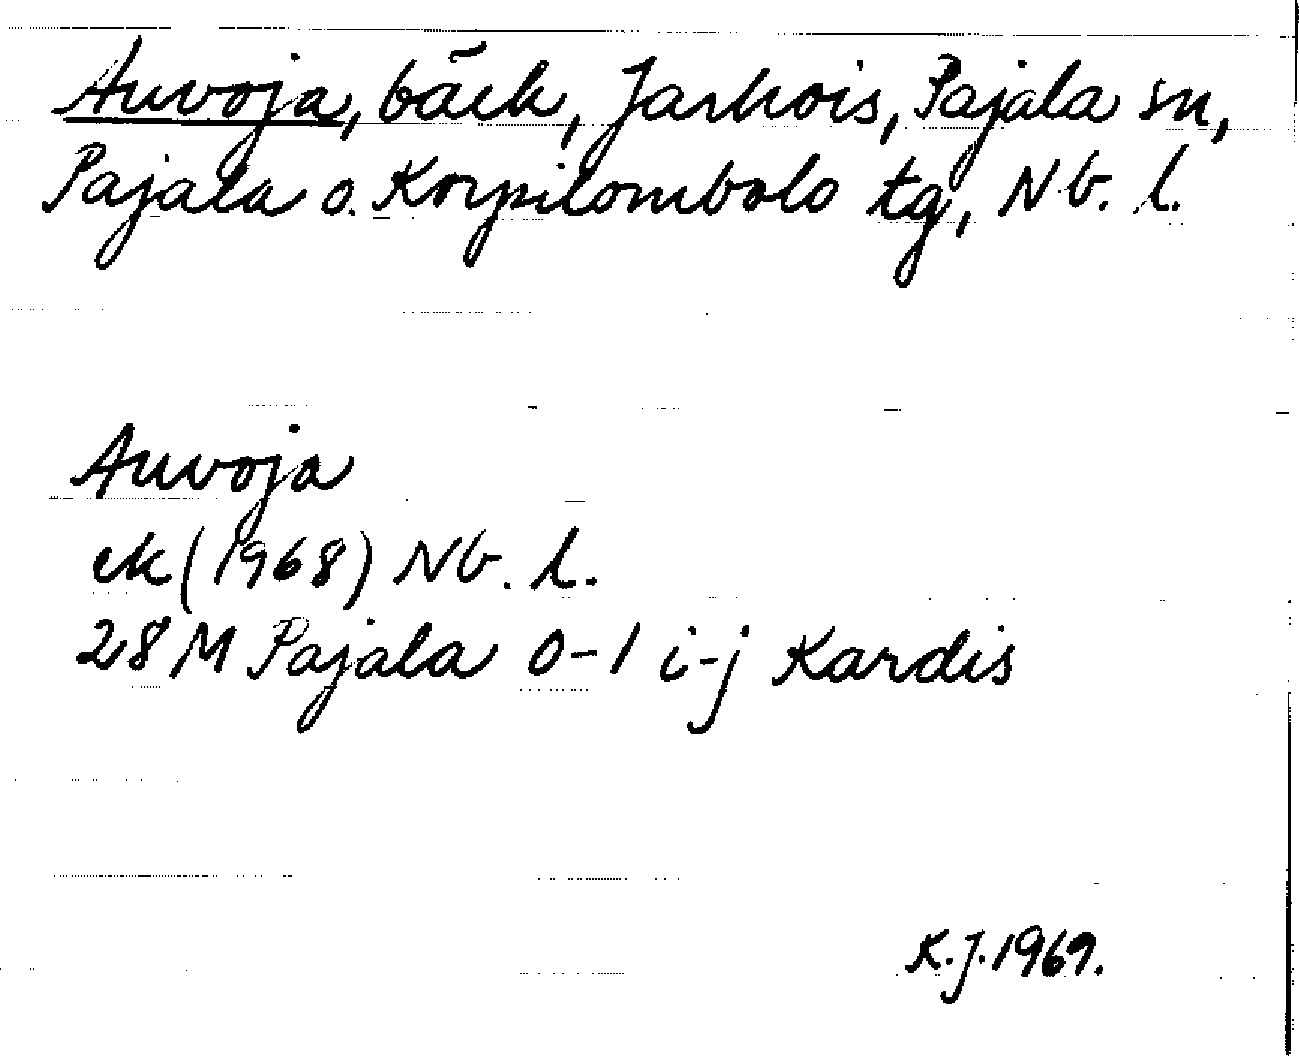 Auvoja, bäck, Jarhois, Pajala sn,
Pajala o. Korpilombolo tg, Nb. l.
Auvoja
ek (1968) Nb. l.
28 M Pajala 0-1 i-j Kardis
K.J. 1969.